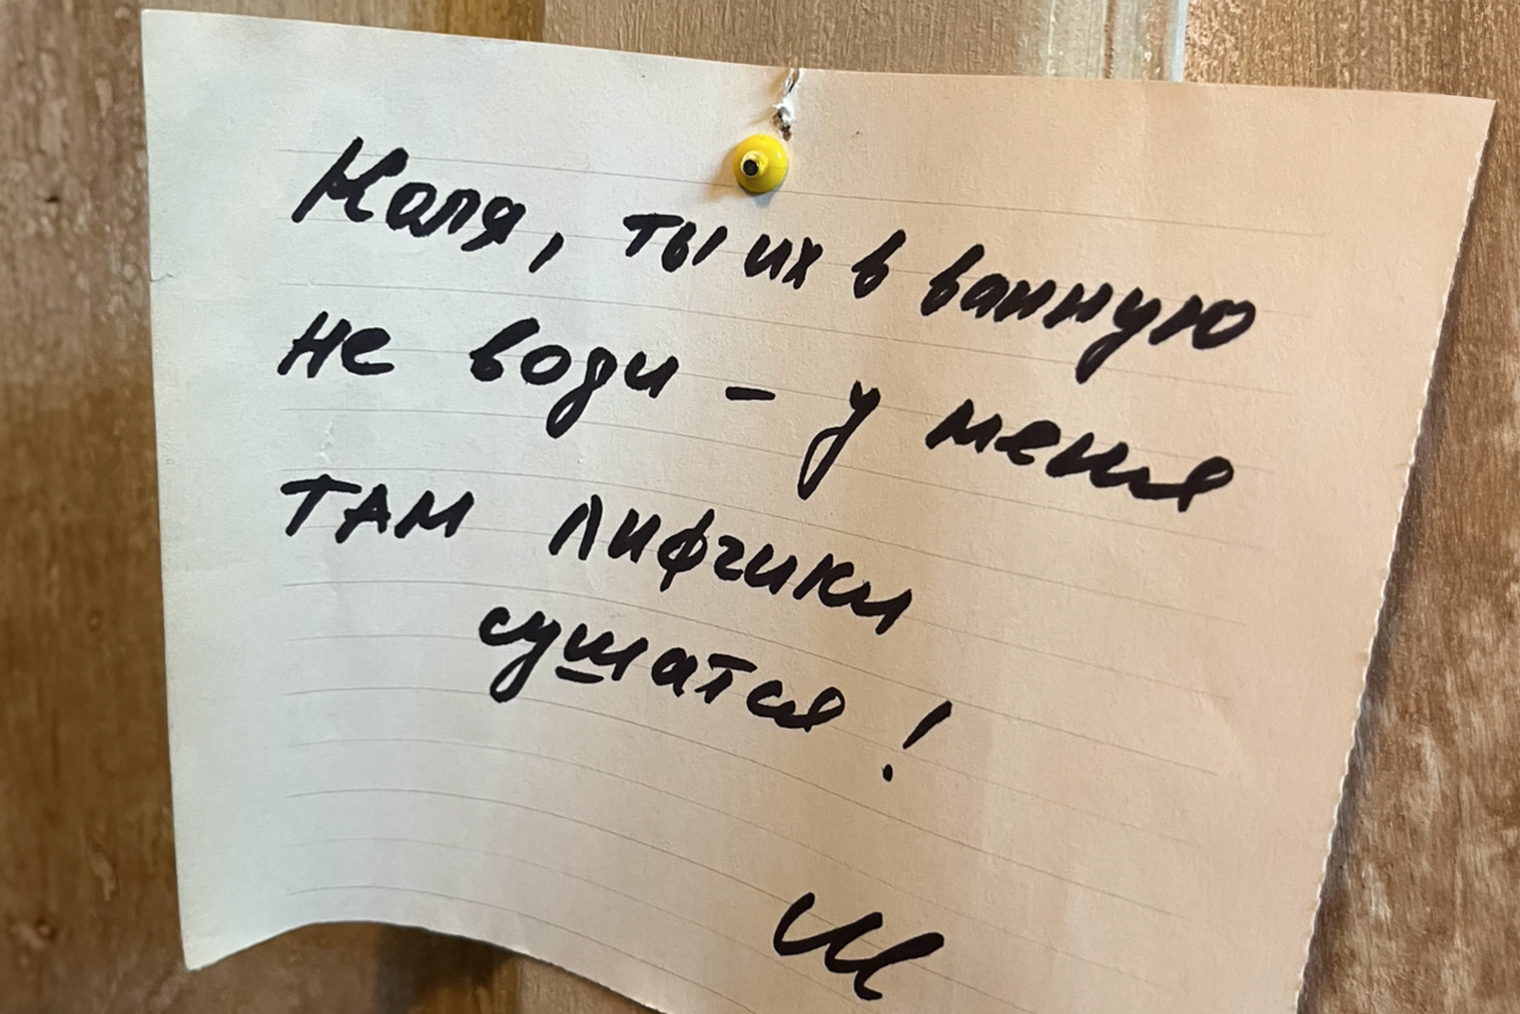 Коля, ты их в ванную
не води – у меня
там лифчики
сушатся!
М